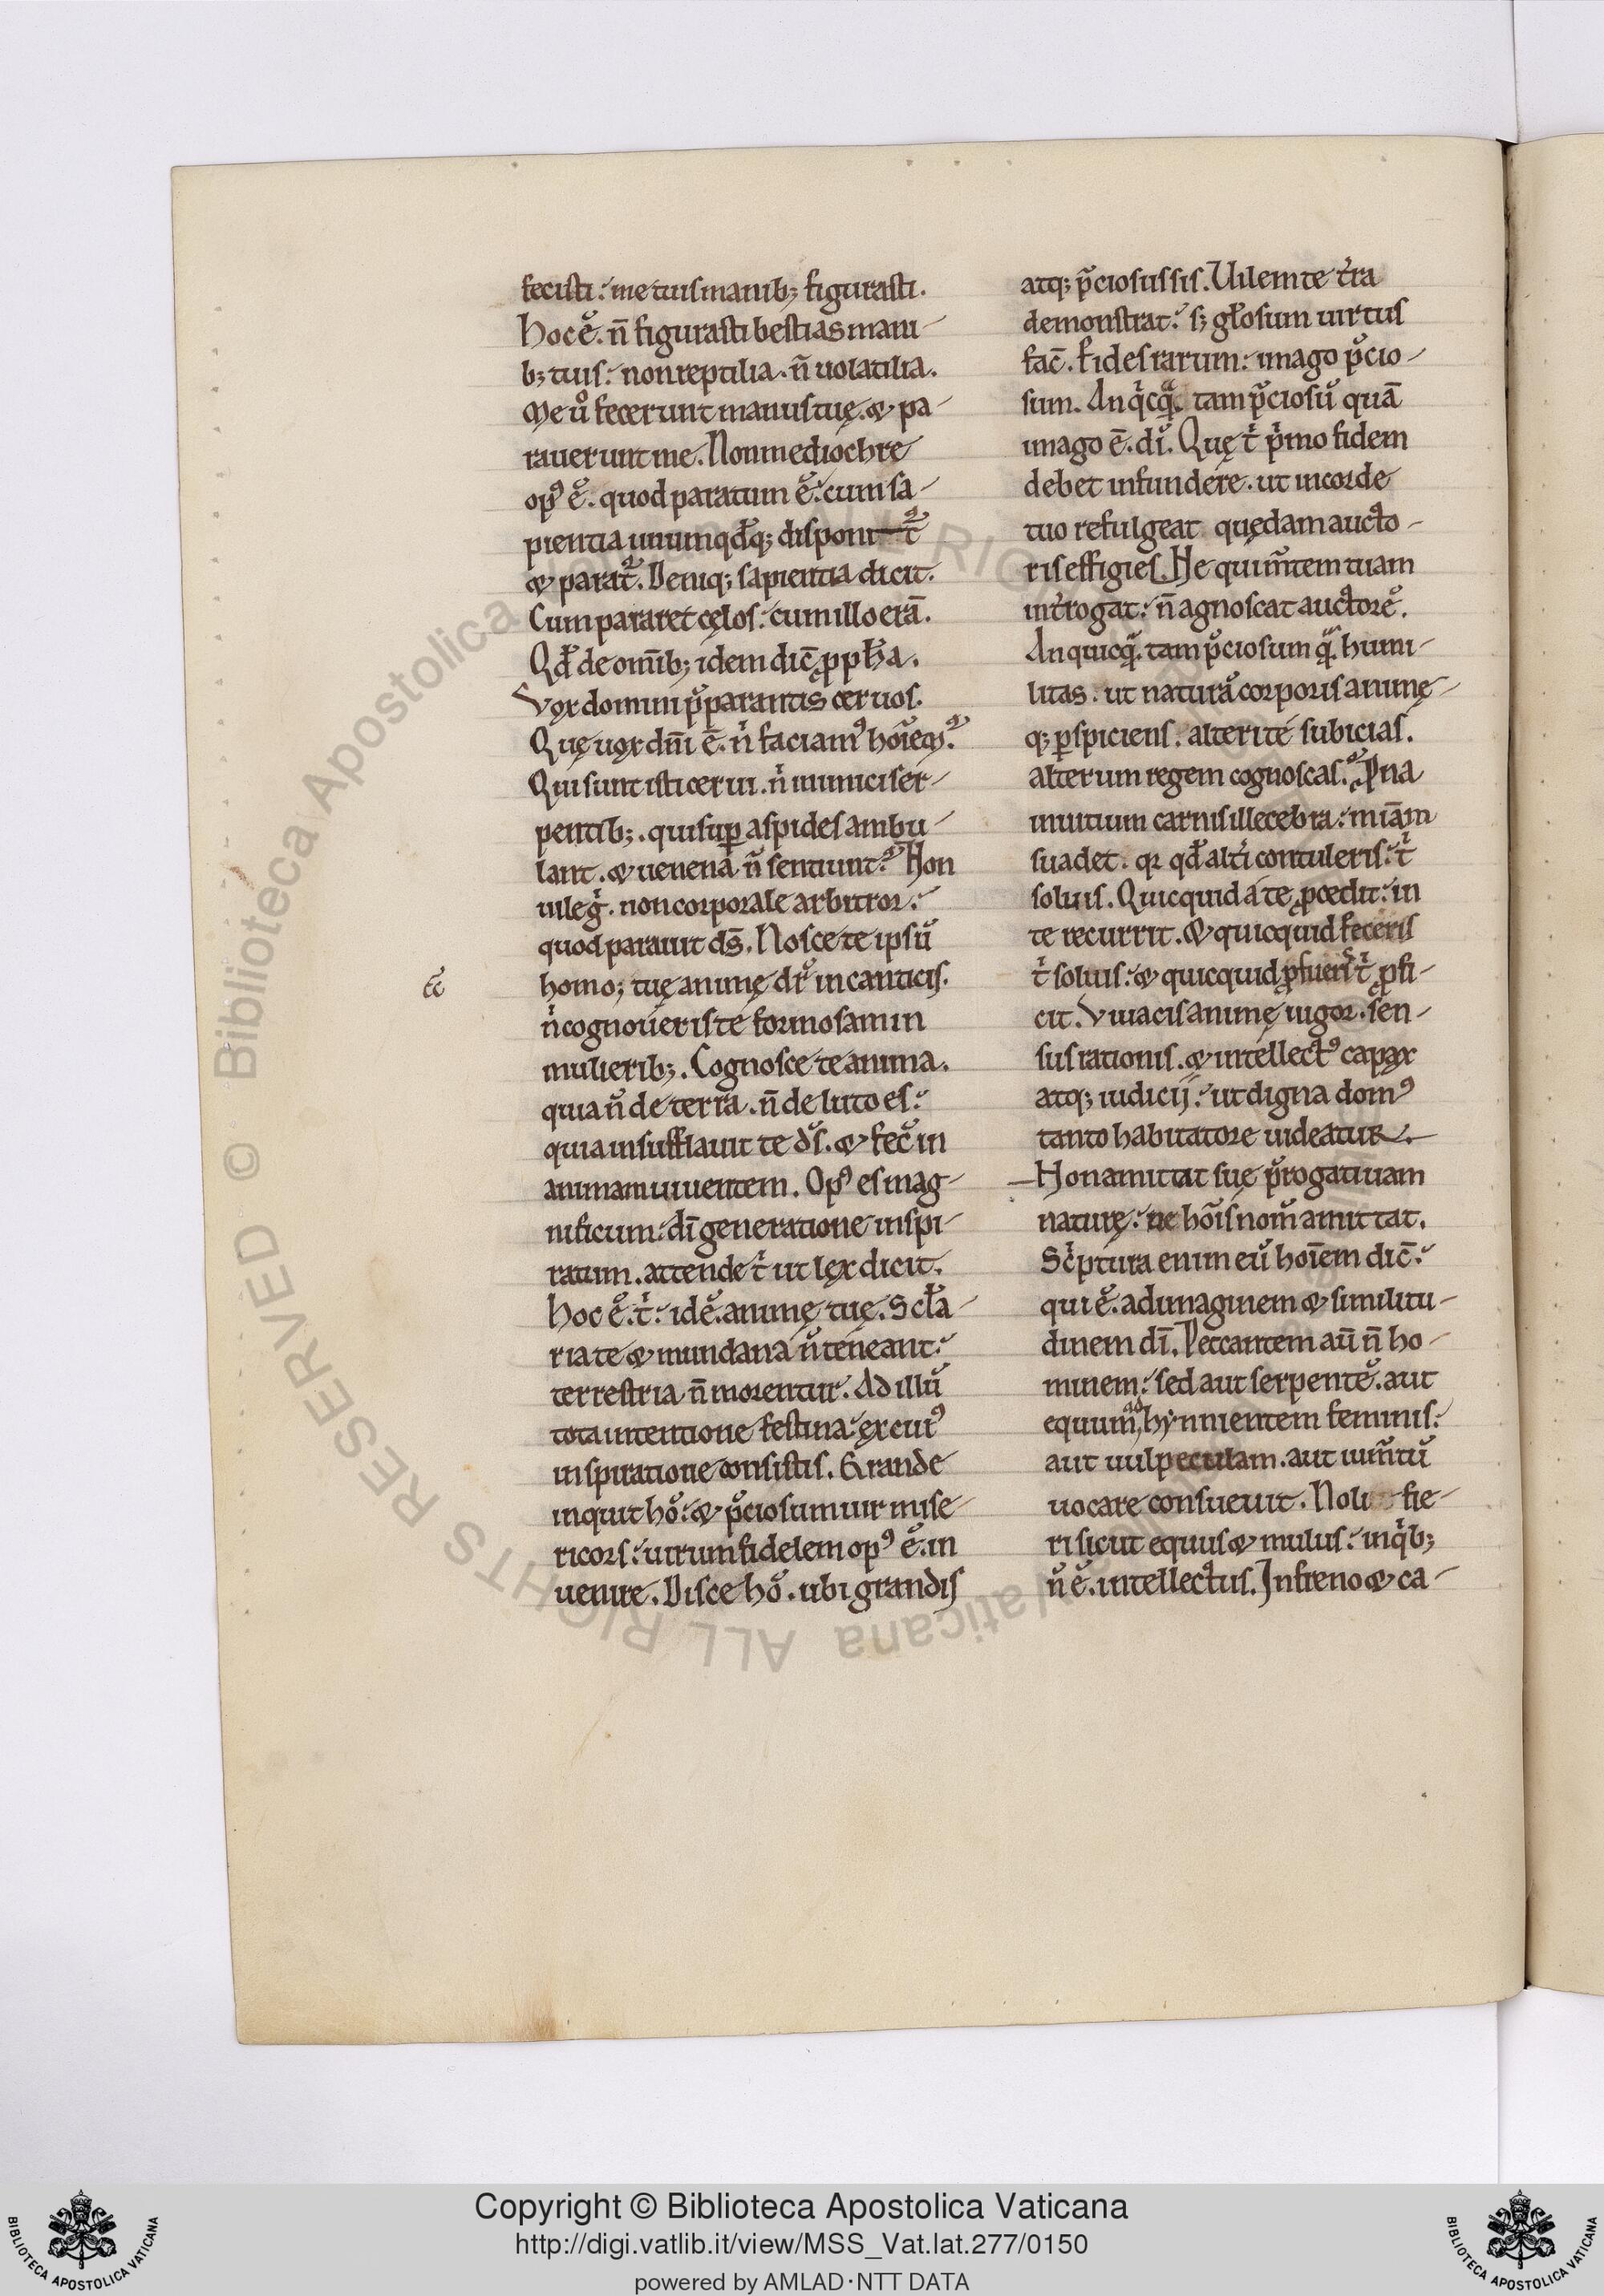 fecisti. me tuis manib; figurasti.
Hoc ē. n̄ figurasti bestias mani-
b; tuis. non reptilia. n̄ uolatilia.
Me ů fecerunt manus tuę. & pa-
rauerunt me. Non mediochre
op᾽ ē. quod paratum ē. cum sa-
pientia unumqđq; disponit̄
& parat̄. Deniq; sapientia dicit.
Cum pararet cęlos. cum illo erā.
Qđ de omīb; idem dic̄ ꝓ pph̄a.
Vox domini p̄parantis ceruos.
Quę uox dn̄i ē. ṅ faciam᾽ hoīem.
Qui sunt isti cerui. ṅ inimici ser-
pentib;. qui suꝑ aspides ambu-
lant. & uenena n̄ sentiunt. Non
uile g̊. non corporale arbitror.
quod parauit ds̄. Nosce te ipsū
homo; tuę animę dr̄ in canticis.
ṅ cognoueris te formosam in
mulierib;. Cognosce te anima.
quia n̄ de terra. n̄ de luto es.
quia insufflauit te ds̄. & fec̄ in
animam uiuentem. Op᾽ es mag-
nificum. dī generatione inspi-
ratum. attende t̊ ut lex dicit.
Hoc ē. t̊. id ē. animę tuę. Scl̄a-
ria te & mundana n̄ teneant.
terrestria n̄ morentur. Ad illū
tota intentione festina. ex cui᾽
inspiratione consistis. Grande
inquit hō. & p̄ciosum uir mise-
ricors. uirum fidelem op᾽ ē. in
uenire. Disce hō. ubi grandis
atq; p̄ciosus sis. Vilem te t̄ra
demonstrat. s; gl̄osum uirtus
fac̄. fides rarum. imago p̄cio-
sum. An q̊cq̄. tam p̄ciosū quā
imago ē. dī. Quę t̊ p̊mo fidem
debet infundere. ut in corde
tuo refulgeat quędam aucto-
ris effigies. Ne qui m̄tem tuam
int̄rogat. n̄ agnoscat auctorē.
An quicq̄. tam p̄ciosum q̄. humi-
litas. ut naturā corporis animę-
q; ꝑspiciens. alteri te subicias.
alterum regem cognoscas.
inuitium carnis illecebra. miām
suadet. qđ alt̄i contuleris. t̊
soluis. Quicquid a te ꝓcedit. in
te recurrit. & quicquid feceris
t̊ soluis. & quicquid ꝓfueris t̊ ꝓfi-
cit. Viuacis animę uigor. sen-
sus rationis. & intellect᾽ capax
atq; iudicij. ut digna dom᾽
tanto habitatore uideatur.
Non amittat suę p̄rogatiuam
naturę. ne hoīs nom̄ amittat.
Sc̊ptura enim eū hoīem dic̄.
qui ē. ad imaginem & similitu-
dinem dī. Peccantem aū n̄ ho-
minem. sed aut serpentē. aut
equum ad hẏnnientem feminis.
aut uulpeculam. aut ium̄tū
uocare consueuit. Noli fie-
ri sicut equus & mulus. in q̊b;
n̄ ē. intellectus. In freno & ca-
Copyright © Biblioteca Apostolica Vaticana
http://digi.vatlib.it/view/MSS_Vat.lat.277/0150
powered by AMLAD·NTT DATA
BIBLIOTECA APOSTOLICA VATICANA
BIBLIOTECA APOSTOLICA VATICANA